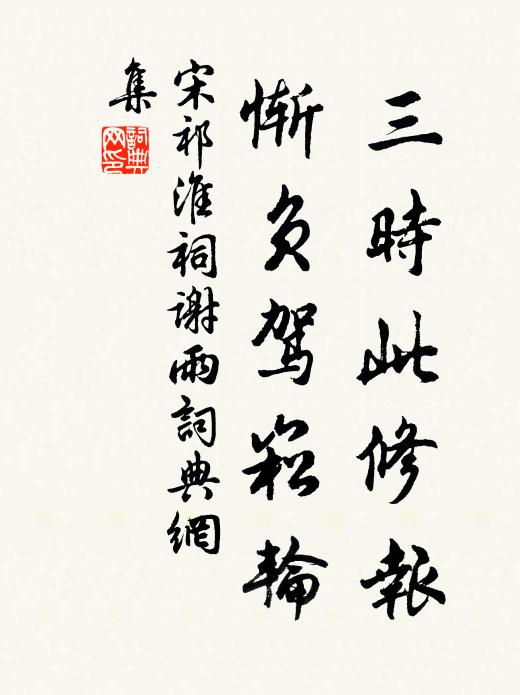 三時此修報
慚負駕崧輪
宋祁淮祠謝雨詞典網
集
詞典網印